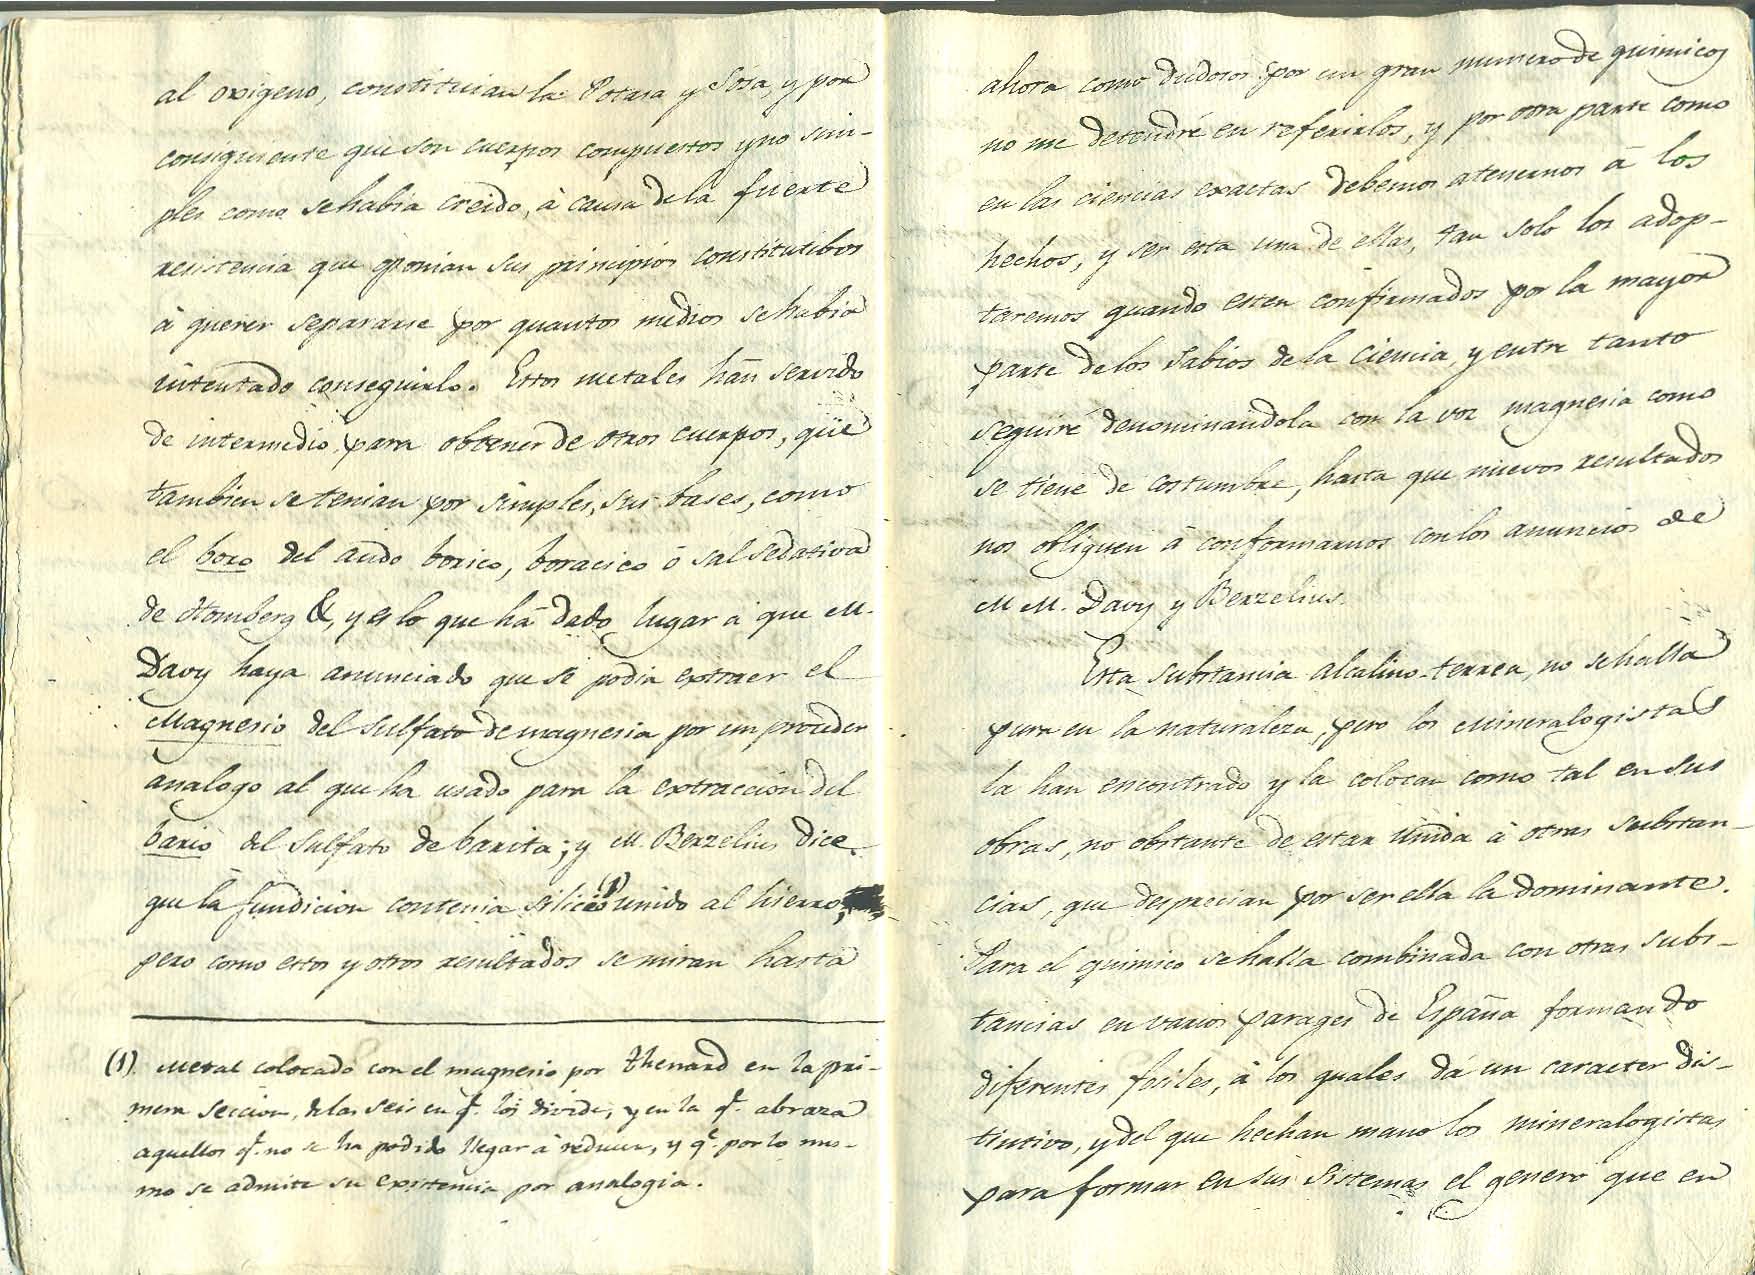 al oxigeno, constituian la Potasa y Sosa, y por
consiguiente que son cuerpos compuestos y no sim-
ples como se habia creido, à causa de la fuerte
resistencia que oponian sus principios constitutibos
à querer separarse por quantos medios se habia
intentado conseguirlo. Estos metales hán servido
de intermedio para obtener de otros cuerpos, que
tambien se tenian por simples, sus bases, como
el boro del acido borico, boracico ó sal sedativa
de Homberg &, y es lo que há dado lugar a que M.
Davy haya anunciado que se podia extraer el
Magnesio del sulfato de magnesia por un proceder
analogo al que ha usado para la extraccion del
bario del sulfato de barita; y M. Berzelius dice
que la fundicion contenia silicio (1) unido al hierro;
pero como estos y otros resultados se miran hasta
(1) Metal colocado con el magnesio por Thenard en la pri-
mera seccion, de las seis en q.e los divide, y en la q.e abraza
aquellos q.e no se ha podido llegar à reducir, y q.e por lo mis-
mo se admite su existencia por analogia.
ahora como dudosos por un gran numero de quimicos
no me detendré en referirlos, y por otra parte como
en las ciencias exactas debemos atenernos à los
hechos, y ser esta una de ellas, tan solo los adop-
taremos quando esten confirmados por la mayor
parte de los Sabios de la Ciencia, y entre tanto
seguiré denominandola con la voz magnesia como
se tiene de costumbre, hasta que nuevos resultados
nos obliguen à conformarnos con los anuncios de
M M. Davy y Berzelius.
Esta substancia alcalino-terrea, no se halla
pura en la naturaleza, pero los Mineralogistas
la han encontrado y la colocan como tal en sus
obras, no obstante de estar unida à otras substan-
cias, que desprecian por ser ella la dominante.
Para el quimico se halla combinada con otras subs-
tancias en varios parages de España formando
diferentes fosiles, à los quales dá un caracter dis-
tintivo, y del que hechan mano los mineralogistas
para formar en sus Sistemas el genero que en